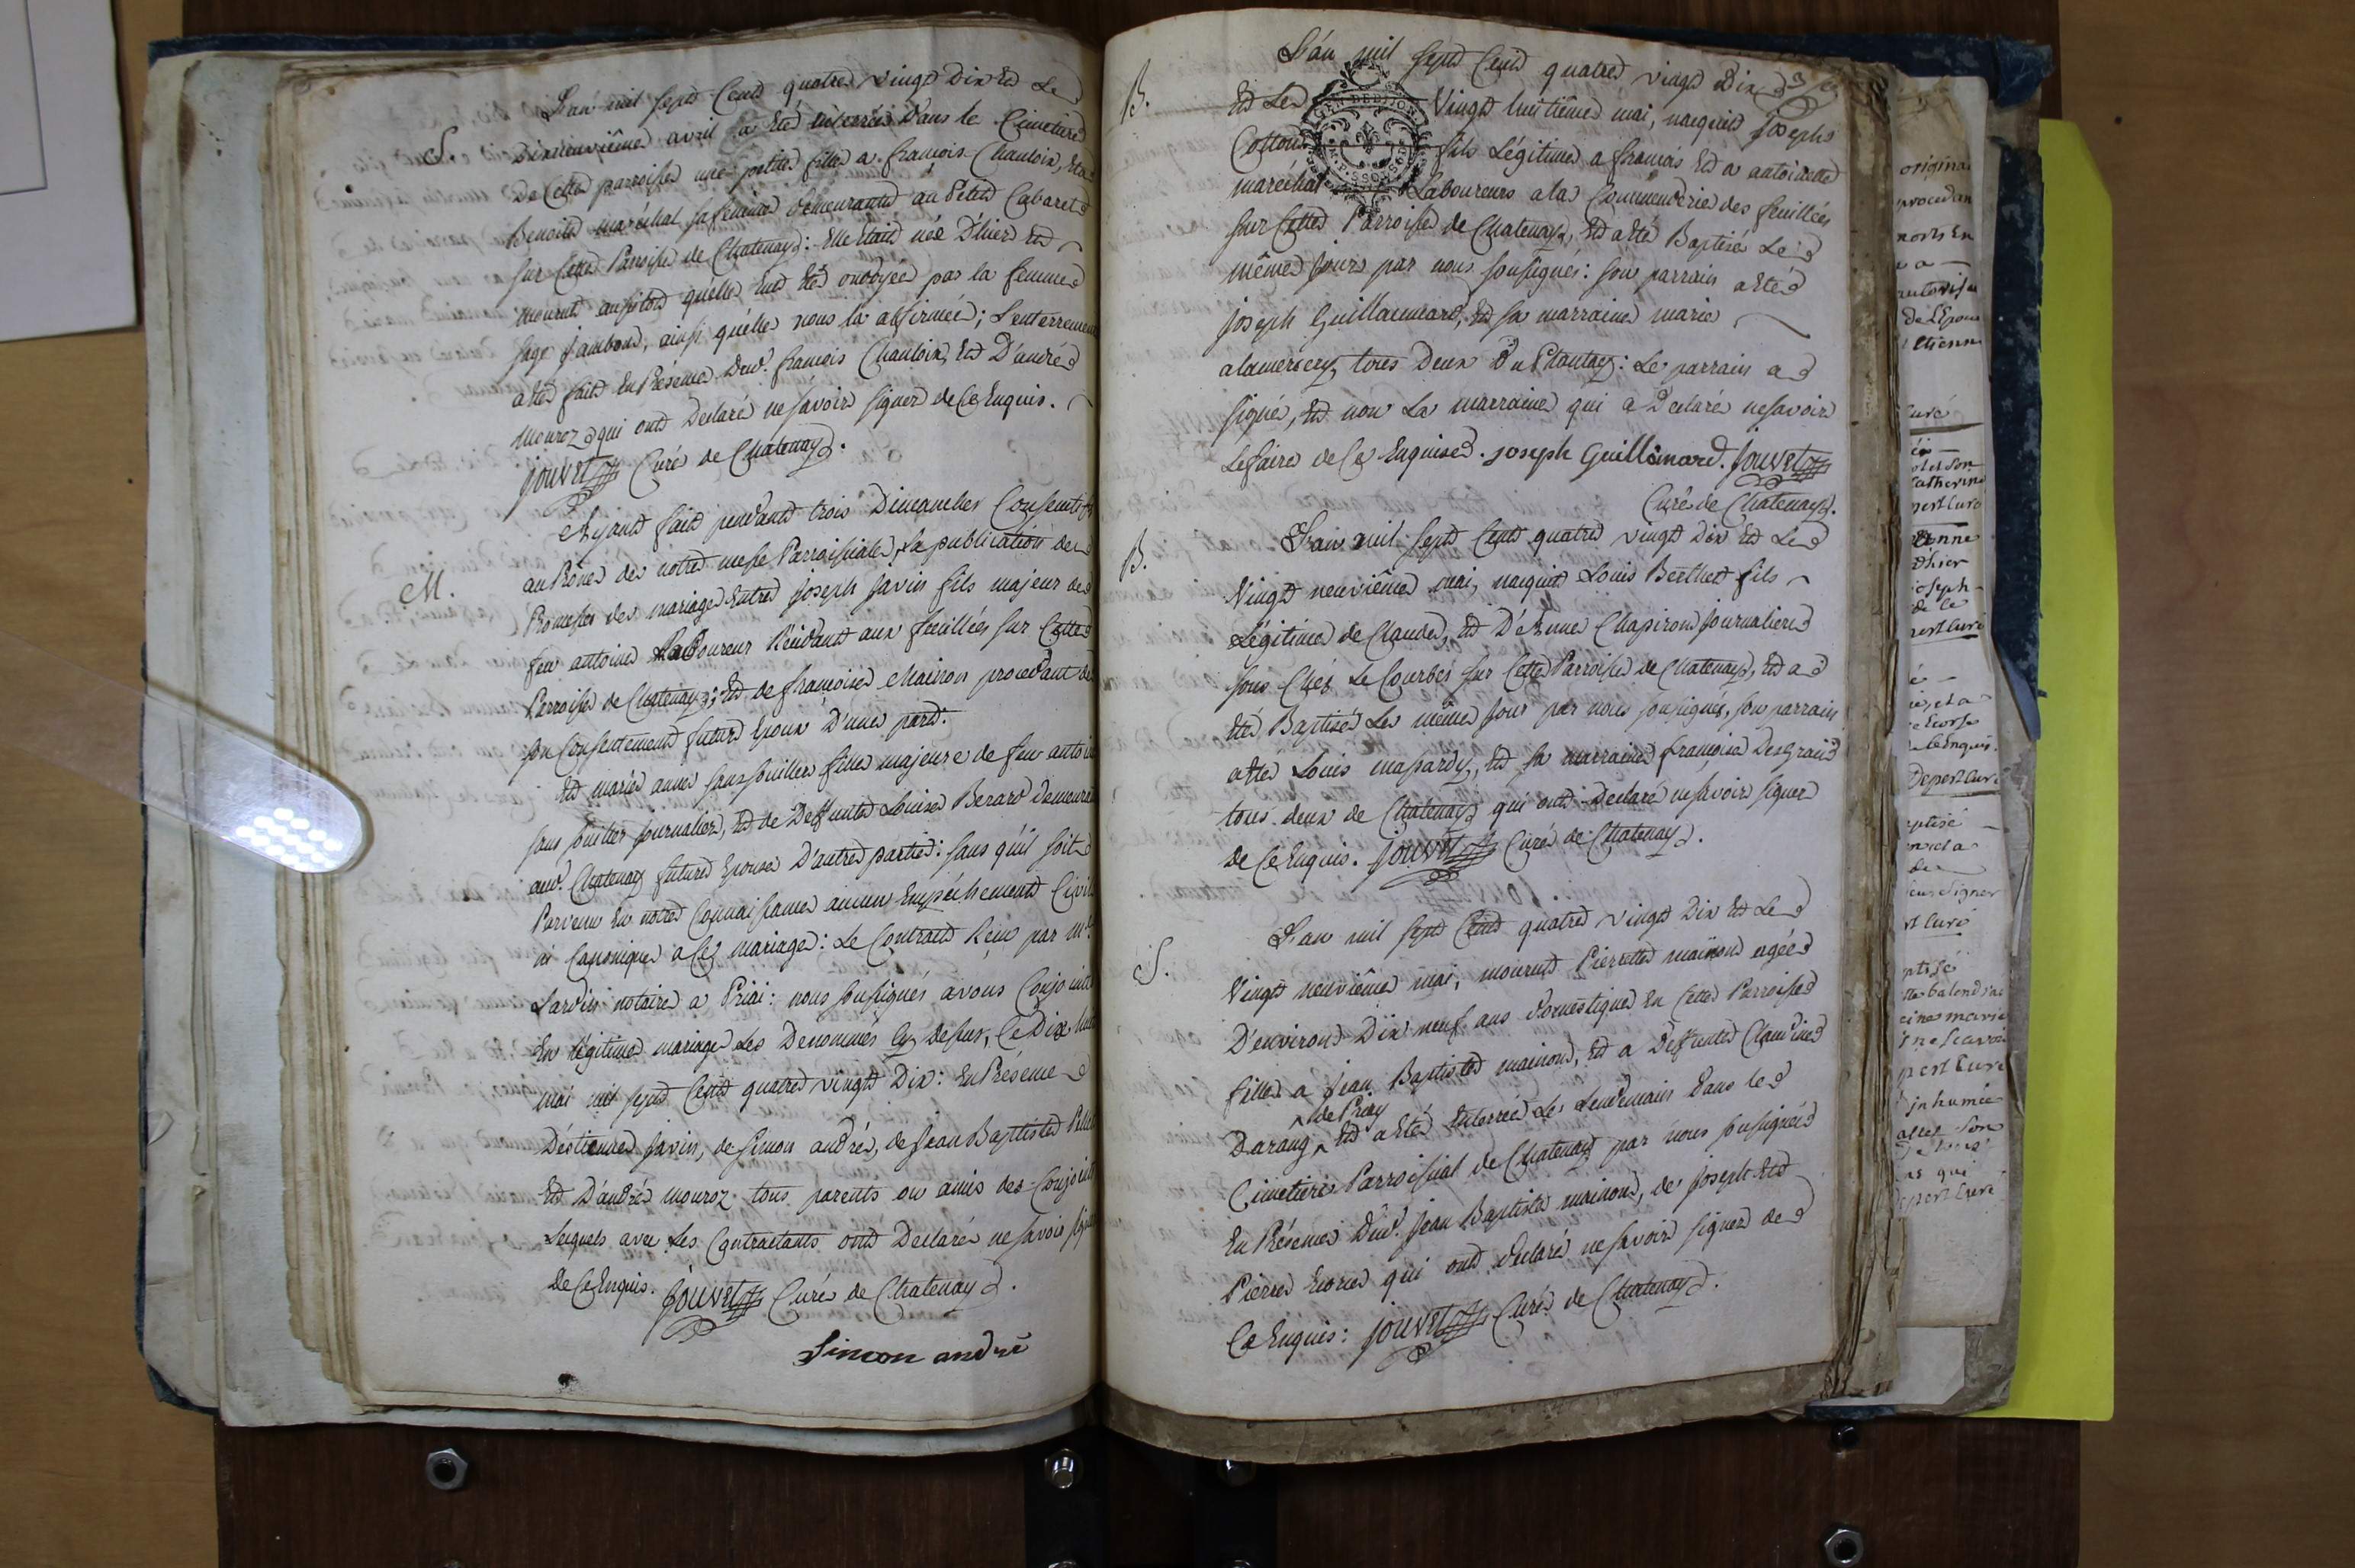 L'an mil sept Cent quatre vingt Dix Et Le
S.
Dixneuvième avril a Eté enterrée Dans le Cimetiere
De Cette parroisse une petite fille a françois Chanloin, Et a
Benoite maréchal sa femme demeurante au Petit Cabaret
sur Cette Parroisse de Chatenay: Elle étoit née D'hier Et
mourut ausitot quelle eut été ondoyée par la femme
sage Jambon, ainsi quélle nous la affirmée; L'enterrement
a eté fait En Présence Dud. françois Chanloin, Et D'andré
Mouroz qui ont Declaré ne savoir signer de Ce Enquis.
Jouvet Curé de Chatenay.
Ayant fait pendant trois Dimanches Consecutifs
M.
au Prône de notre messe Parroissiale, La publication de
Promesses de mariage Entre Joseph Savin fils majeur de
feu antoine Laboureur Résidant aux feuillées sur Cette
Parroisse de Chatenay; Et de françoise Mainon procédant de
son Consentement futur Epoux D'une part.
Et marie anne sanssouiller fille majeure de feu antoine
sans souiller journalier, Et de Deffunte Louise Berard demeurant
aud. Chatenay future Epouse D'autre partie: sans qu'il soit
Parvenu En notre Connaissance aucun Empéchement Civil
ni Canonique a Ce mariage: Le Contract Reçu par Me
Sardin notaire a Priai: nous soussignés avons Conjoint
En légitime mariage Les Denommés Cy dessus, Ce Dix huit
mai mil sept Cent quatre vingt Dix: En Présence
D'éstienne Savin, de Simon andré, de Jean Baptiste
Et D'andré mouroz tous parents ou amis des Conjoints
Lesquels avec Les Contractants ont Declaré ne savoir signer
De Ce Enquis. Jouvet Curé de Chatenay.
Simon andré
L'an mil sept Cent quatre vingt Dix
B.
Et Le Vingt huitième mai, nacquit Joseph
Cotton fils Légitime a françois Et a antoinette
maréchal Laboureurs a la Commenderie des feuillées
sur Cette Parroisse de Chatenay, Et a été Baptisé Le
même Jour par nous soussigné: son parrain a été
Joseph Guillaumard, Et sa marraine marie
alamercery tous Deux Du Plantay: Le parrain a
signé, Et non La marraine qui a Declaré ne savoir
Le faire de Ce Enquise. Joseph Guillomard. Jouvet
Curé de Chatenay.
B.
L'an mil sept Cent quatre vingt Dix Et Le
Vingt neuvième mai, nacquit Louis Berthet fils
Légitime de Claude, Et D'Anne Chapiron Journaliers
sous Chéz Le Courbés sur Cette Parroisse de Chatenay, Et a
été Baptisé Le même Jour par nous soussigné, son parrain
a été Louis mapardy, Et sa marraine françoise Desgrand
tous deux de Chatenay qui ont Declaré ne savoir signer
de Ce Enquis. Jouvet Curé de Chatenay.
L'an mil sept Cent quatre vingt Dix Et Le
S.
Vingt neuvième mai, mourut Pierrette mainon agée
D'environ Dix neuf ans domestique En Cette Parroisse
fille a Jean Baptiste mainon, Et a Deffunte Claudine
de Priay
Darang Et a été Enterrée Le Lendemain Dans le
Cimetiere Parroissial de Chatenay par nous soussigné
En Présence Dud. Jean Baptiste mainon, de Joseph Et
Pierre qui ont declaré ne savoir signer de
Ce Enquis: Jouvet Curé de Chatenay.